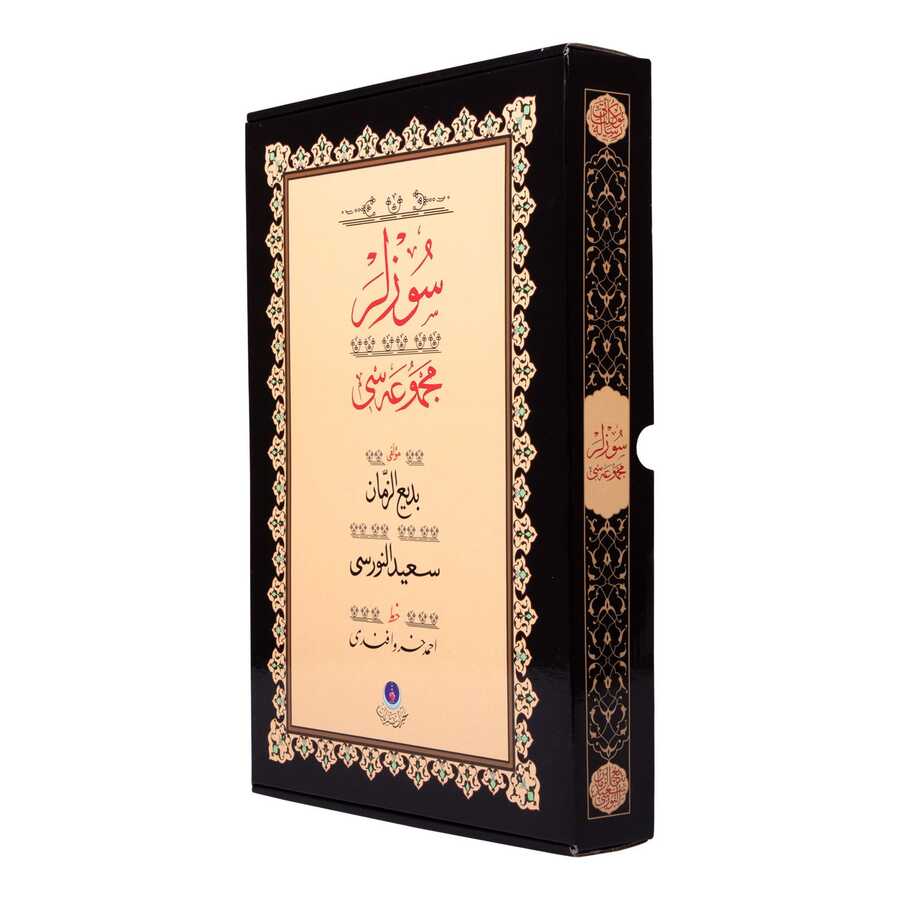 سُوزلَر
مجموُعَه سی
مؤلفی
بديع الزّمان
سعيد النورسی
خط
احمد خسرو افندی
سوزلر
مجموعه سی